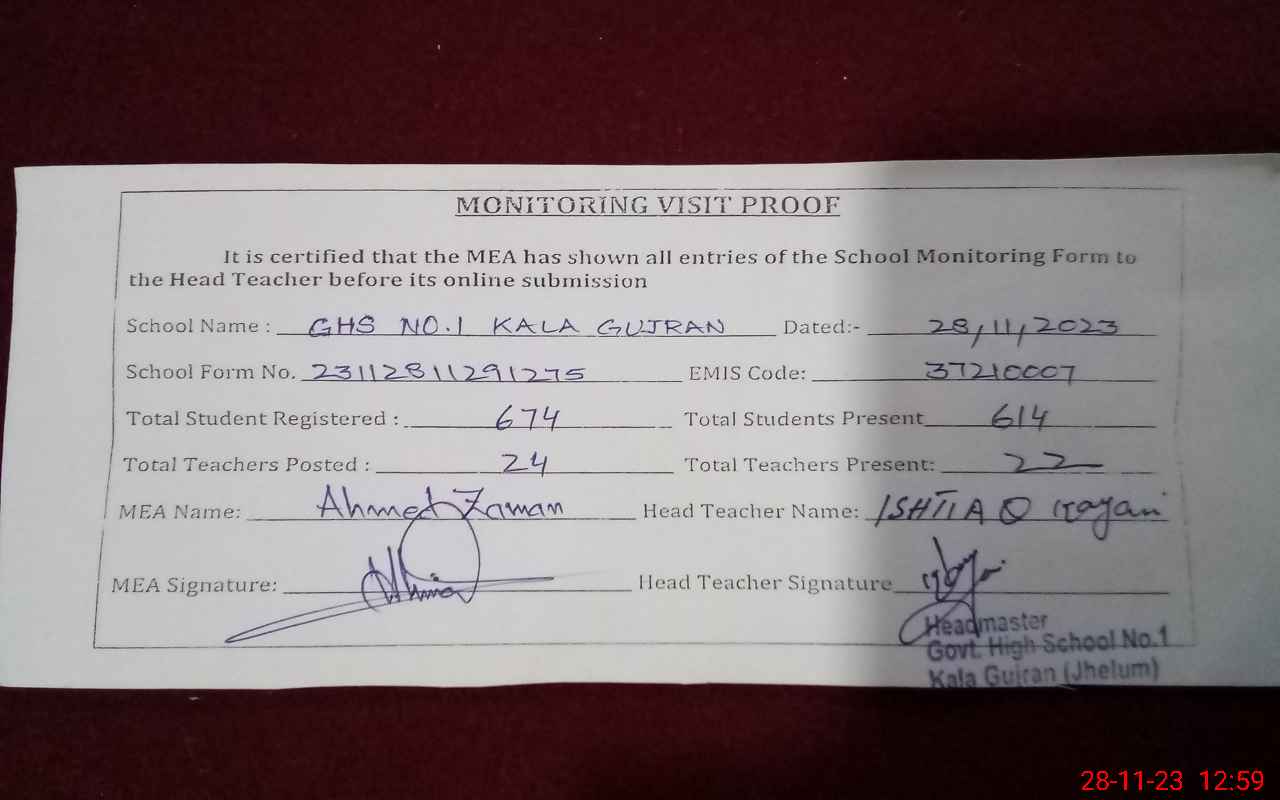 MONITORING VISIT PROOF
It is certified that the MEA has shown all entries of the School Monitoring Form to
the Head Teacher before its online submission
School Name : GHS NO.1 KALA GUJRAN Dated:- 28/11/2023
School Form No. 23112811291275 EMIS Code: 37210007
Total Student Registered : 674 Total Students Present 614
Total Teachers Posted : 24 Total Teachers Present: 22
MEA Name: Ahmed Zaman Head Teacher Name: ISHTIAQ Kayani
MEA Signature: Head Teacher Signature
Headmaster
Govt. High School No.1
Kala Gujran (Jhelum)
28-11-23 12:59